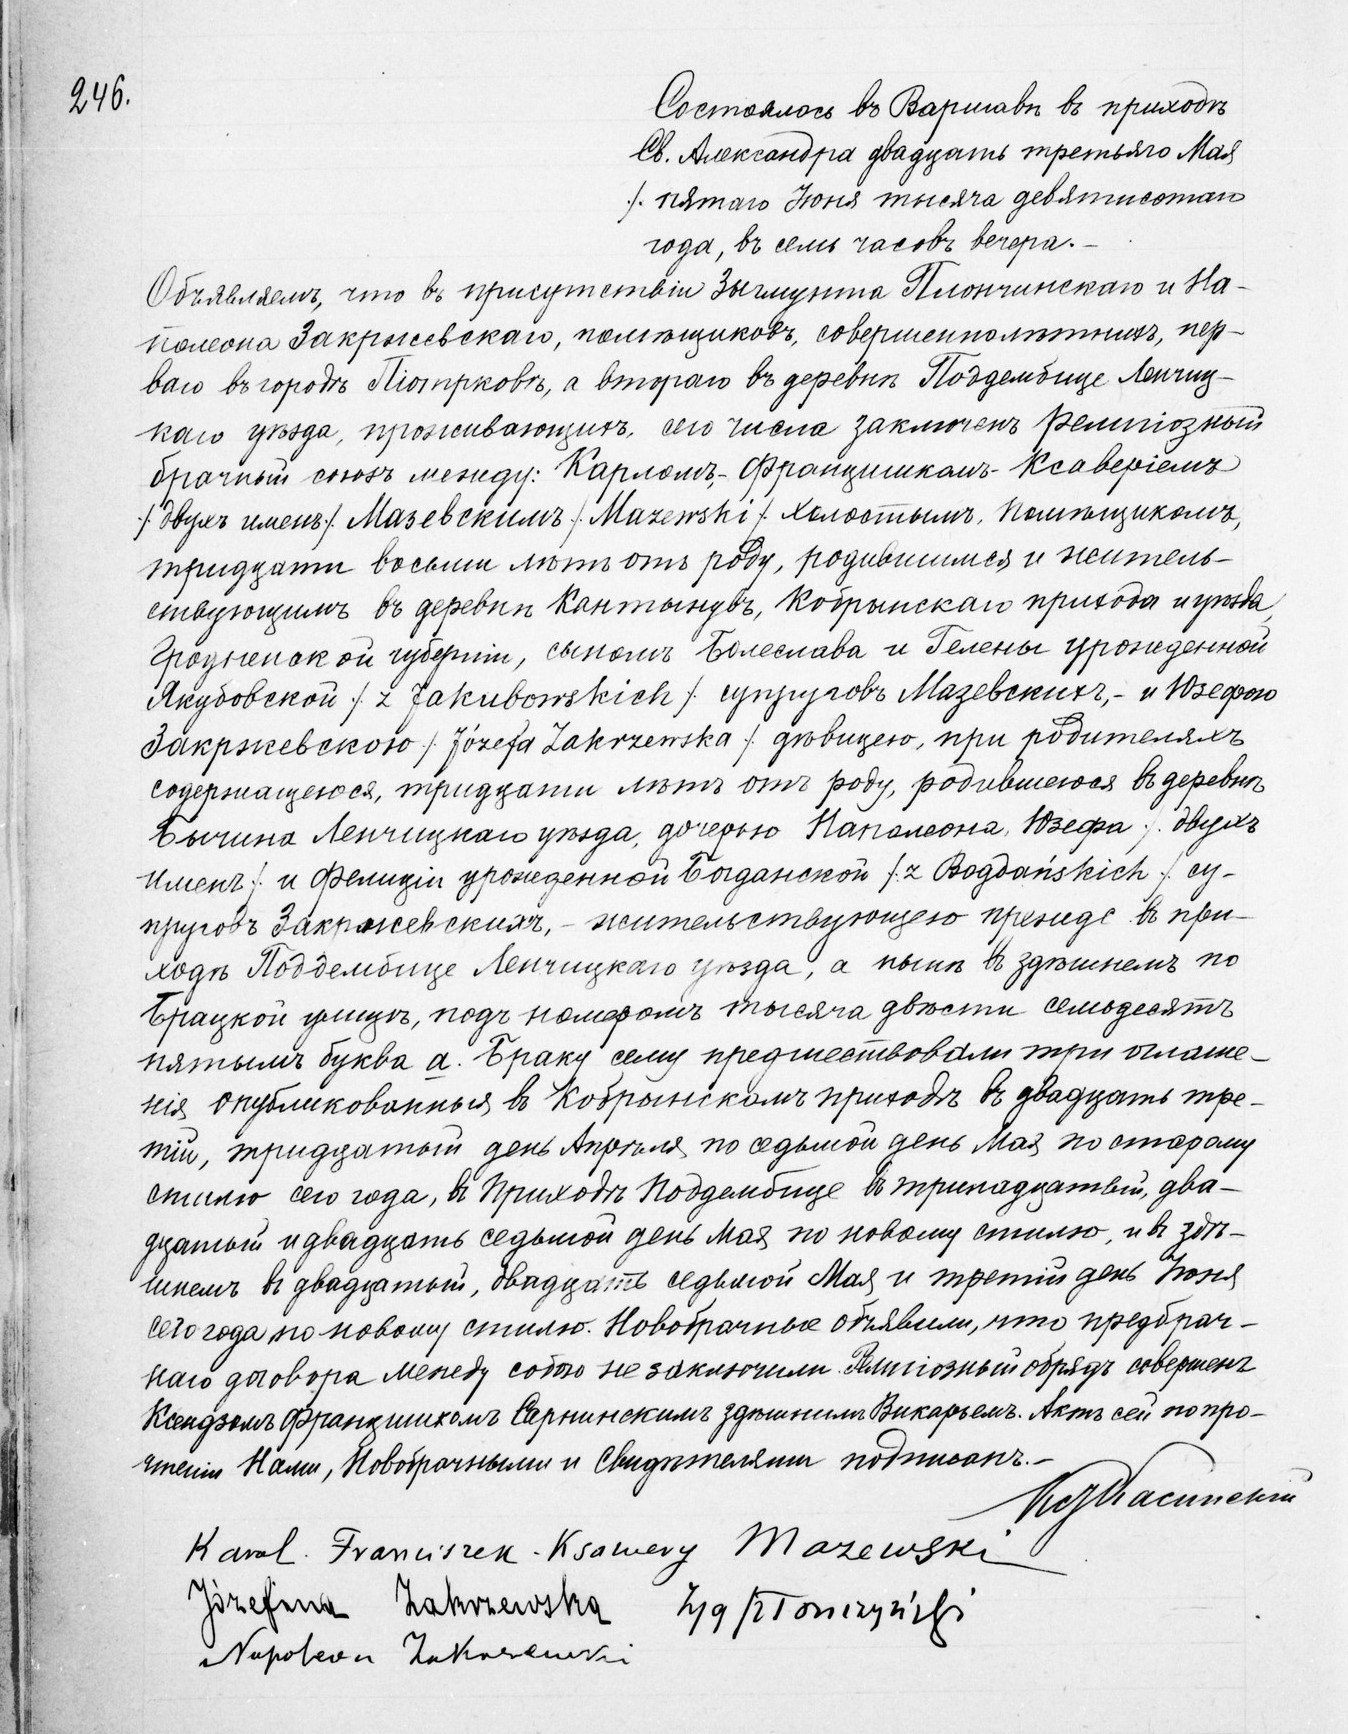 246.
Состоялось въ Варшавѣ въ приходѣ
Св. Александра двадцать третьяго Мая
/. пятаго Іюня тысяча девятисотаго
года, въ семь часовъ вечера. –
Объявляемъ, что въ присутствіи Зыгмунта Плончинскаго и На-
полеона Закржевскаго, помѣщиковъ, совершеннолѣтнихъ, пер-
ваго въ городѣ Піотрковѣ, а втораго въ деревнѣ Поддембице Ленчиц-
каго уѣзда, проживающихъ, сего числа заключенъ религіозный
брачный союзъ между: Карломъ,- Францишкомъ- Ксаверіемъ
/. двухъ именъ/. Мазевскимъ /. Mazewski /. холостымъ, помѣщикомъ,
тридцати восьми лѣтъ отъ роду, родившимся и житель-
ствующимъ въ деревнѣ Кантынувъ, Кобрынскаго прихода и уѣзда,
Гродненской губерніи, сыномъ Болеслава и Гелены урожденной
Якубовской /. z Jakubowskich /. супруговъ Мазевскихъ,- и Юзефою
Закржевскою /. Józefa Zakrzewska /. дѣвицею, при родителяхъ
содержащеюся, тридцати лѣтъ отъ роду, родившеюся въ деревнѣ
Бычина Ленчицкаго уѣзда, дочерью Наполеона, Юзефа /. двухъ
именъ /. и Фелиціи урожденной Богданской /. z Bogdańskich /. су-
пруговъ Закржевскихъ, – жительствующею прежде въ при-
ходѣ Поддембице Ленчицкаго уѣзда, а нынѣ въ здѣшнемъ по
Брацкой улицѣ, подъ номеромъ тысяча двѣсти семьдесятъ
пятымъ буква а. Браку сему предшествовали три оглаше-
нія опубликованныя въ Кобрынскомъ приходѣ въ двадцать тре-
тій, тридцатый день Апрѣля по седьмой день Мая по старому
стилю сего года, въ приходѣ Поддембице въ тринадцатый, два-
дцатый и двадцать седьмой день Мая по новому стилю, и въ здѣ-
шнемъ въ двадцатый, двадцать седьмой Мая и третій день Іюня
сего года по новому стилю. Новобрачные объявили, что предбрач-
наго договора между собою не заключили. Религіозный обрядъ совершенъ
Ксендзомъ Францишкомъ Сернинскимъ здѣшнимъ Викарьемъ. Актъ сей по про-
чтеніи Нами, Новобрачными и Свидѣтелями подписанъ. –
Karol Franciszek - Ksawery Mazewski
Józefina Zakrzewska Zyg Płonczyński
Napoleon Zakrzewski